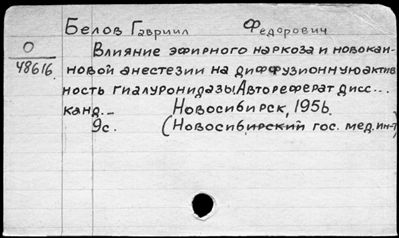 Белов Гавриил Федорович
О
48616.
Влияние эфирного наркоза и новокаи-
новой анестезии на диффузионную актив
ность гиалуронидазы Автореферат дисс...
канд.- Новосибирск, 1956.
9с. (Новосибирский гос. мед. ин-т)